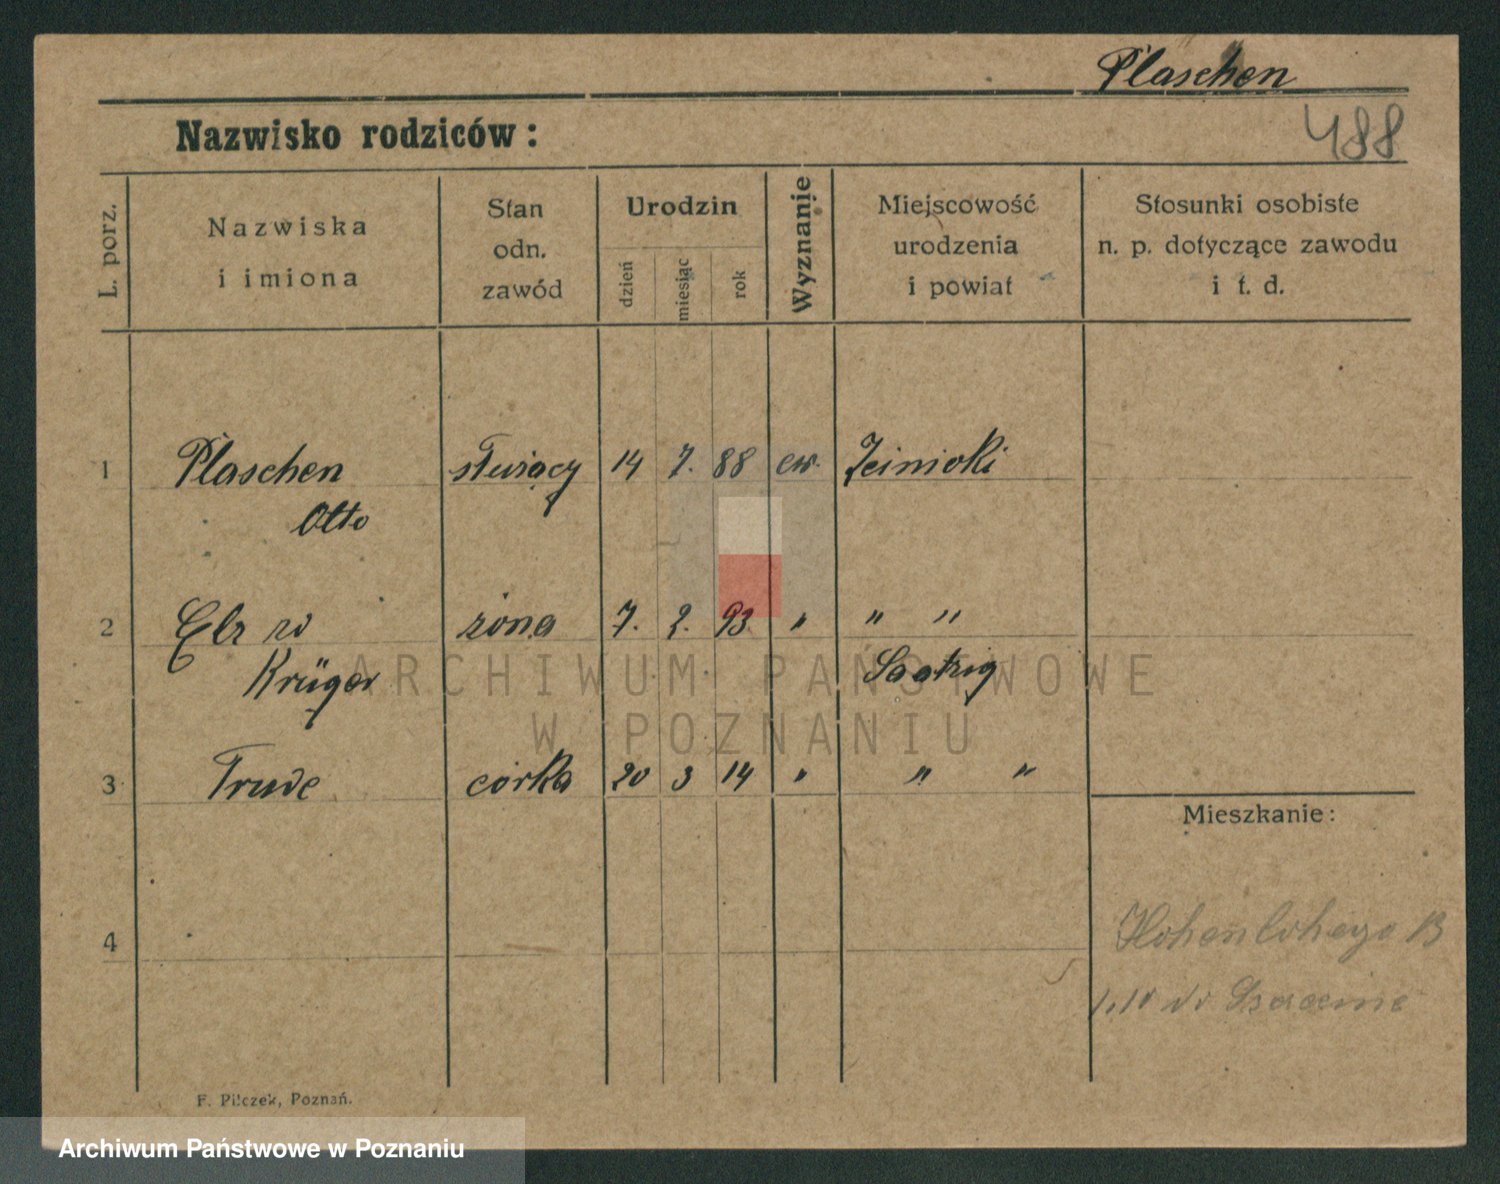 Plaschen
488
Nazwisko rodziców:
L. porz.
Nazwiska
i imiona
Stan
odn.
zawód
Urodzin
dzień
miesiąc
rok
Wyznanie
Miejscowość
urodzenia
i powiat
Stosunki osobiste
n. p. dotyczące zawodu
i t. d.
1 Plaschen służący 14 7. 88 ew.
Otto
2 żona 7. 2. 93 " " "
Krüger Saatzig
ARCHIWUM PAŃSTWOWE
W POZNANIU
3 Trude córka 20 3 14 " " "
Mieszkanie:
4
F. Pilczek, Poznań.
Archiwum Państwowe w Poznaniu